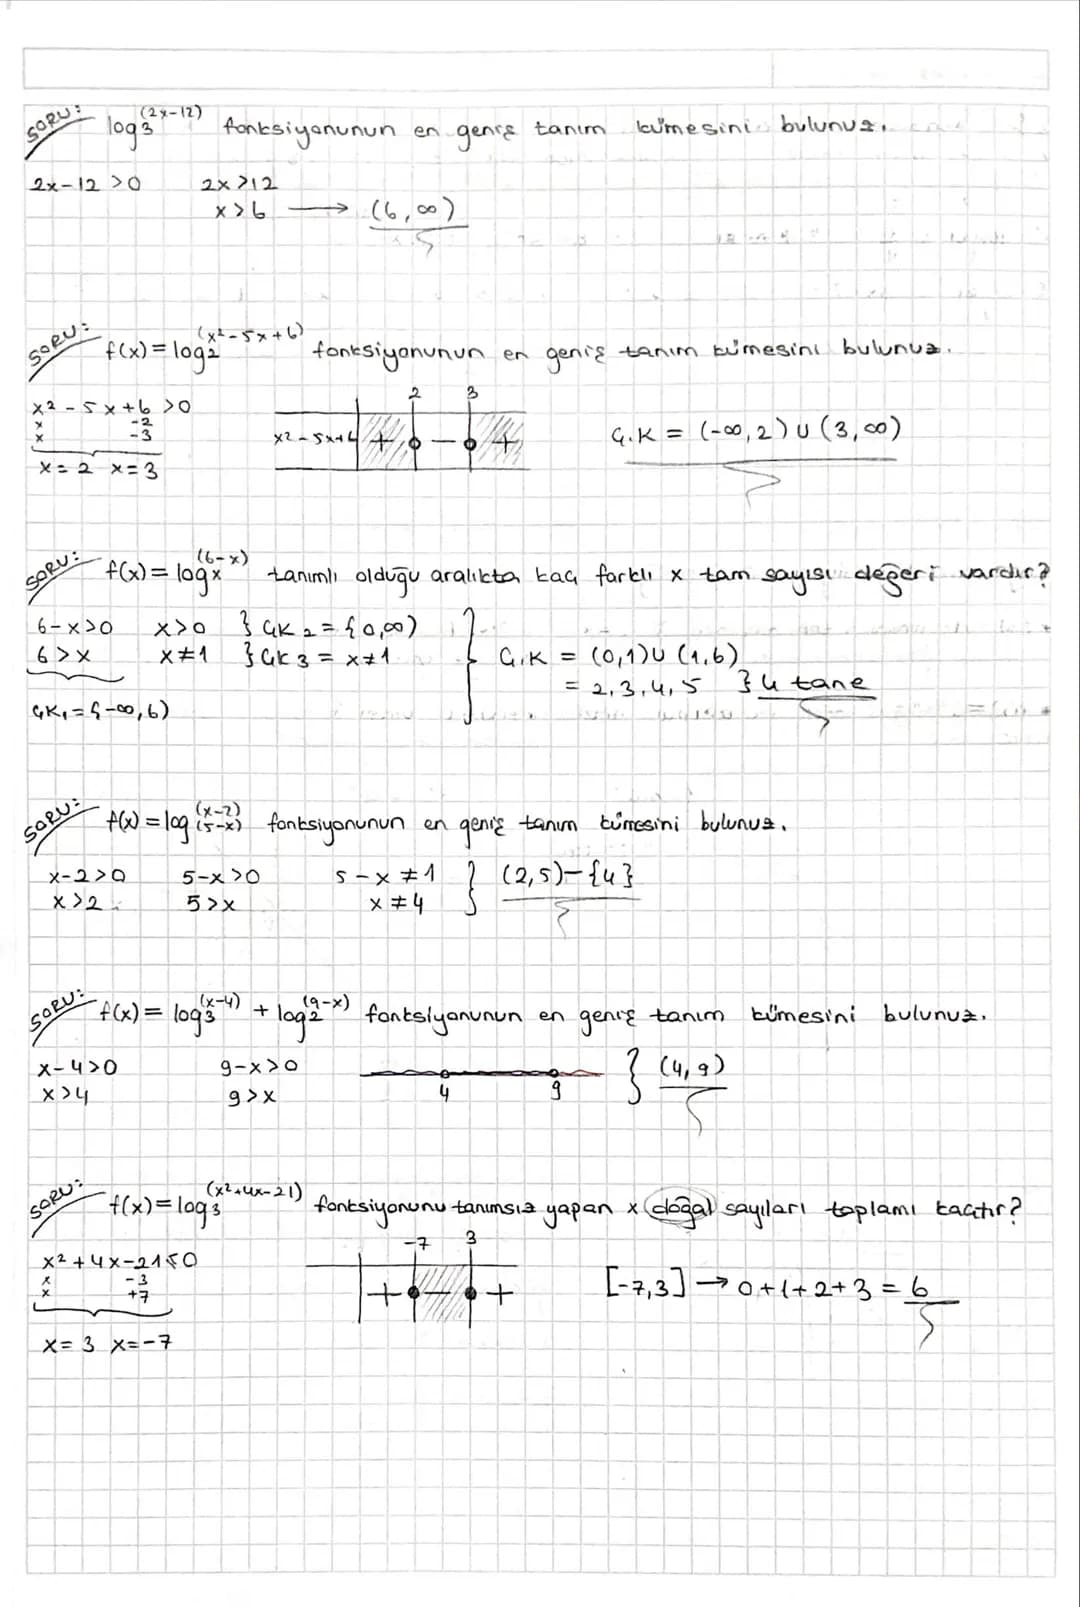 SORU: log₃(2x-12) fonksiyonunun en geniş tanım kümesini bulunuz.
2x-12 >0 2x>12
x>6 → (6,∞)
SORU: f(x)=log₂(x²-5x+6) fonksiyonunun en geniş tanım kümesini bulunuz.
2 3
x² - 5x+6 >0
x -2
x -3
x²-5x+6 + - +
Ç.K = (-∞,2) ∪ (3,∞)
x=2 x=3
SORU: f(x)=logₓ(6-x) tanımlı olduğu aralıkta kaç farklı x tam sayısı değeri vardır?
6-x>0 x>0 } ÇK₂={0,∞)
6>x x≠1 } ÇK3 = x≠1 } Ç.K = (0,1)∪(1,6)
= 2,3,4,5 } 4 tane
ÇK₁={-∞,6)
SORU: f(x)=log₍₅₋ₓ₎(x-2) fonksiyonunun en geniş tanım kümesini bulunuz.
x-2>0 5-x>0 5-x≠1 } (2,5)-{4}
x>2 5>x x≠4
SORU: f(x)=log₃(x-4) + log₂(9-x) fonksiyonunun en geniş tanım kümesini bulunuz.
x-4>0 9-x>0 } (4,9)
x>4 9>x 4 9
SORU: f(x)=log₃(x²+4x-21) fonksiyonunu tanımsız yapan x doğal sayıları toplamı kaçtır?
-7 3
x²+4x-21≤0
x -3
x +7
+ - +
[-7,3] → 0+1+2+3=6
x=3 x=-7